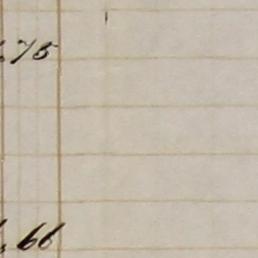 .75
.66